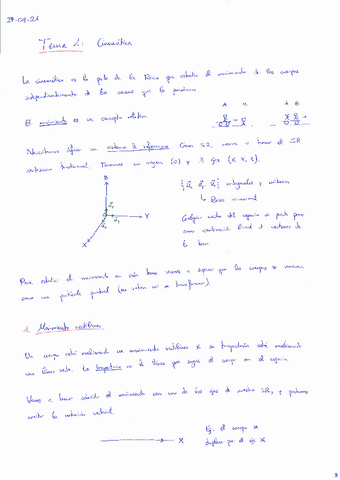 27-09-21
Tema 2: Cinemática
La cinemática es la parte de la Física que estudia el movimiento de los cuerpos
independientemente de las causas que lo producen.
El movimiento es un concepto relativo
A B A B
Necesitamos fijar un sistema de referencia. Como SR, vamos a tomar el SR
cartesiano tridimensional. Tenemos un origen (O) y 3 ejes (X, Y, Z).
Z
Y
X
ortogonales y unitarios
↳ Base ortonormal
Cualquier vector del espacio se puede poner
como combinación lineal de vectores de
la base.
Para estudiar el movimiento en este tema vamos a suponer que los cuerpos se mueven
como una partícula puntual
1. Movimiento rectilíneo
Un cuerpo está realizando un movimiento rectilíneo si su trayectoria está realizando
una línea recta. La trayectoria es la línea que sigue el cuerpo en el espacio
Vamos a hacer coincidir el movimiento con uno de los ejes de nuestro SR, y podemos
omitir la notación vectorial.
X
Ej. el cuerpo se
desplaza por el eje X